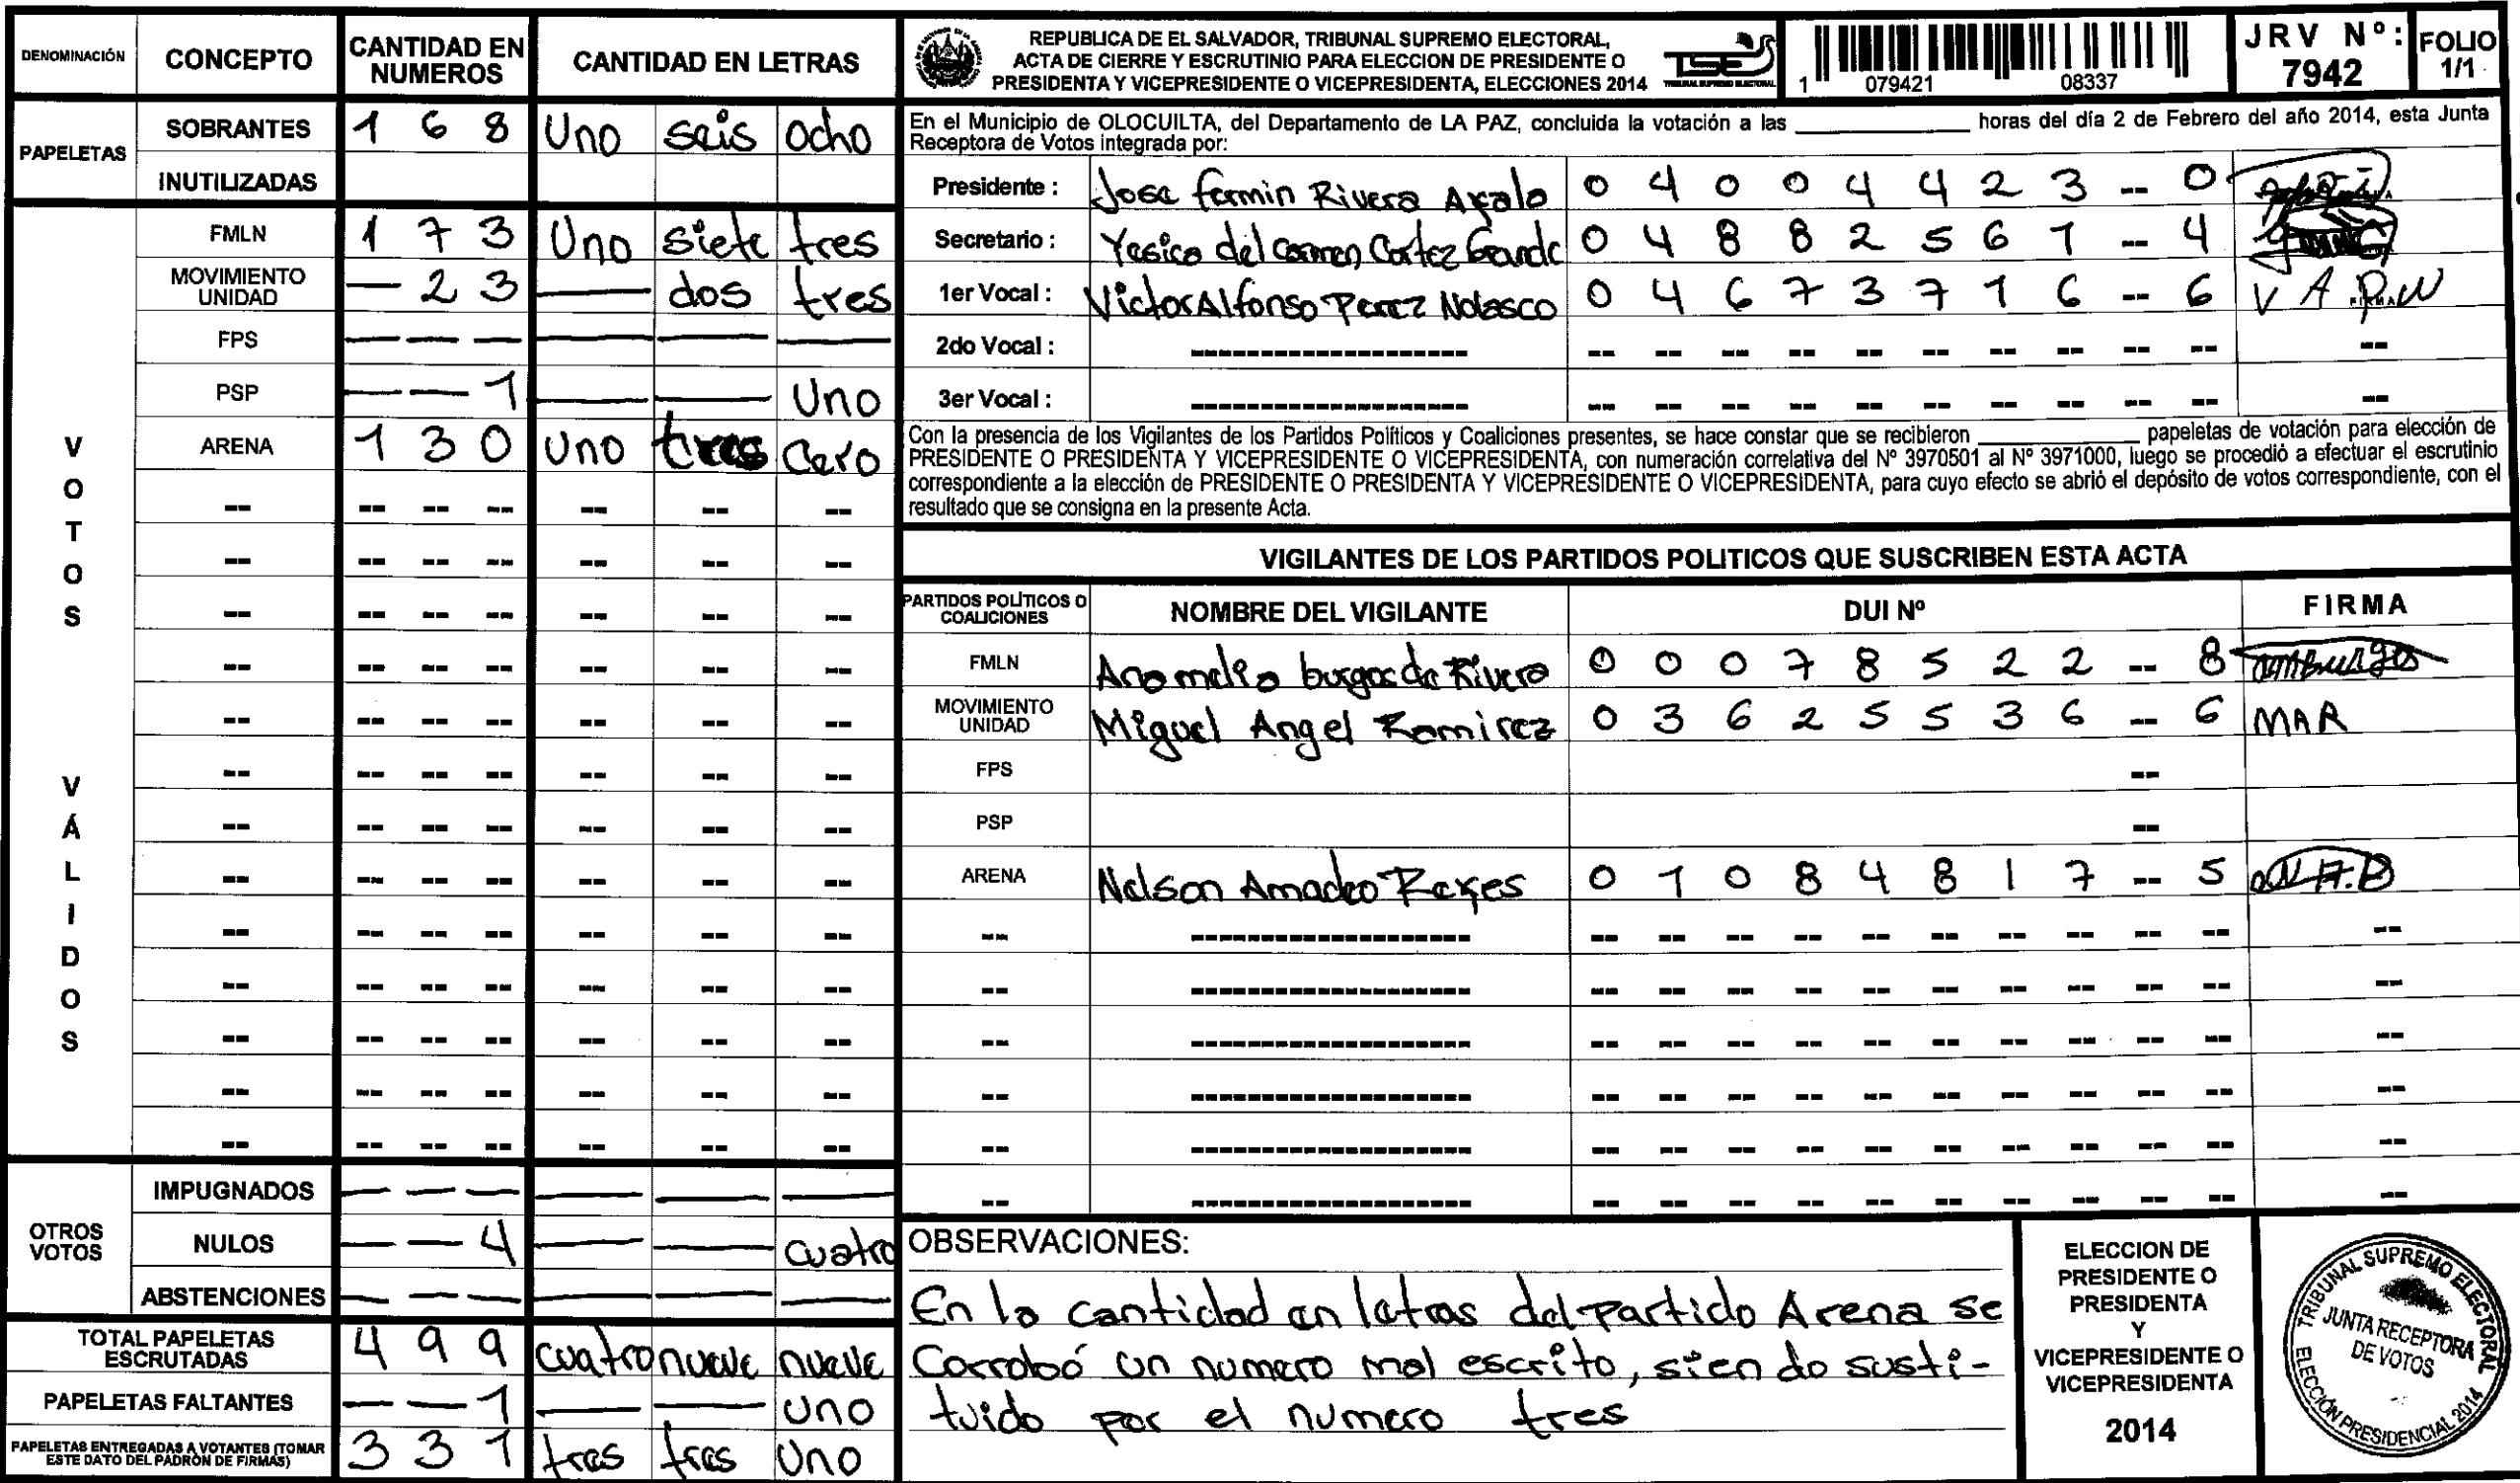 DENOMINACIÓN CONCEPTO CANTIDAD EN NUMEROS CANTIDAD EN LETRAS
PAPELETAS
SOBRANTES 1 6 8 Uno seis ocho
INUTILIZADAS
VOTOS VÁLIDOS
FMLN 1 7 3 Uno siete tres
MOVIMIENTO UNIDAD — 2 3 — dos tres
FPS — — — — — —
PSP — — 1 — — Uno
ARENA 1 3 0 uno tres cero
-- -- -- -- -- -- --
-- -- -- -- -- -- --
-- -- -- -- -- -- --
-- -- -- -- -- -- --
-- -- -- -- -- -- --
-- -- -- -- -- -- --
-- -- -- -- -- -- --
-- -- -- -- -- -- --
-- -- -- -- -- -- --
-- -- -- -- -- -- --
-- -- -- -- -- -- --
-- -- -- -- -- -- --
-- -- -- -- -- -- --
OTROS VOTOS
IMPUGNADOS — — — — — —
NULOS — — 4 — — cuatro
ABSTENCIONES — — — — — —
TOTAL PAPELETAS ESCRUTADAS 4 9 9 cuatro nueve nueve
PAPELETAS FALTANTES — — 1 — — uno
PAPELETAS ENTREGADAS A VOTANTES (TOMAR ESTE DATO DEL PADRÓN DE FIRMAS) 3 3 1 tres tres Uno
REPUBLICA DE EL SALVADOR, TRIBUNAL SUPREMO ELECTORAL,
ACTA DE CIERRE Y ESCRUTINIO PARA ELECCION DE PRESIDENTE O
PRESIDENTA Y VICEPRESIDENTE O VICEPRESIDENTA, ELECCIONES 2014
TSE
TRIBUNAL SUPREMO ELECTORAL
1 079421 08337
JRV Nº: 7942
FOLIO 1/1
En el Municipio de OLOCUILTA, del Departamento de LA PAZ, concluida la votación a las ____ horas del día 2 de Febrero del año 2014, esta Junta
Receptora de Votos integrada por:
Presidente : Jose fermin Rivera Ayala 0 4 0 0 4 4 2 3 -- 0
Secretario : Yesica del carmen Cortez Grande 0 4 8 8 2 5 6 1 -- 4
1er Vocal : Victor Alfonso Perez Nolasco 0 4 6 7 3 7 1 6 -- 6 V A P N
2do Vocal : -------------------- -- -- -- -- -- -- -- -- -- -- --
3er Vocal : -------------------- -- -- -- -- -- -- -- -- -- -- --
Con la presencia de los Vigilantes de los Partidos Políticos y Coaliciones presentes, se hace constar que se recibieron ____ papeletas de votación para elección de
PRESIDENTE O PRESIDENTA Y VICEPRESIDENTE O VICEPRESIDENTA, con numeración correlativa del Nº 3970501 al Nº 3971000, luego se procedió a efectuar el escrutinio
correspondiente a la elección de PRESIDENTE O PRESIDENTA Y VICEPRESIDENTE O VICEPRESIDENTA, para cuyo efecto se abrió el depósito de votos correspondiente, con el
resultado que se consigna en la presente Acta.
VIGILANTES DE LOS PARTIDOS POLITICOS QUE SUSCRIBEN ESTA ACTA
PARTIDOS POLÍTICOS O COALICIONES NOMBRE DEL VIGILANTE DUI Nº FIRMA
FMLN Ana melia burgos de Rivera 0 0 0 7 8 5 2 2 -- 8 amburgos
MOVIMIENTO UNIDAD Miguel Angel Ramirez 0 3 6 2 5 5 3 6 -- 6 MAR
FPS --
PSP --
ARENA Nelson Amadeo Reyes 0 1 0 8 4 8 1 7 -- 5
-- -------------------- -- -- -- -- -- -- -- -- -- -- --
-- -------------------- -- -- -- -- -- -- -- -- -- -- --
-- -------------------- -- -- -- -- -- -- -- -- -- -- --
-- -------------------- -- -- -- -- -- -- -- -- -- -- --
-- -------------------- -- -- -- -- -- -- -- -- -- -- --
-- -------------------- -- -- -- -- -- -- -- -- -- -- --
OBSERVACIONES:
En la cantidad en letras del partido Arena se
Corroboó un numero mal escrito, siendo susti-
tuido por el numero tres
ELECCION DE
PRESIDENTE O
PRESIDENTA
Y
VICEPRESIDENTE O
VICEPRESIDENTA
2014
TRIBUNAL SUPREMO ELECTORAL
JUNTA RECEPTORA
DE VOTOS
ELECCIÓN PRESIDENCIAL 2014